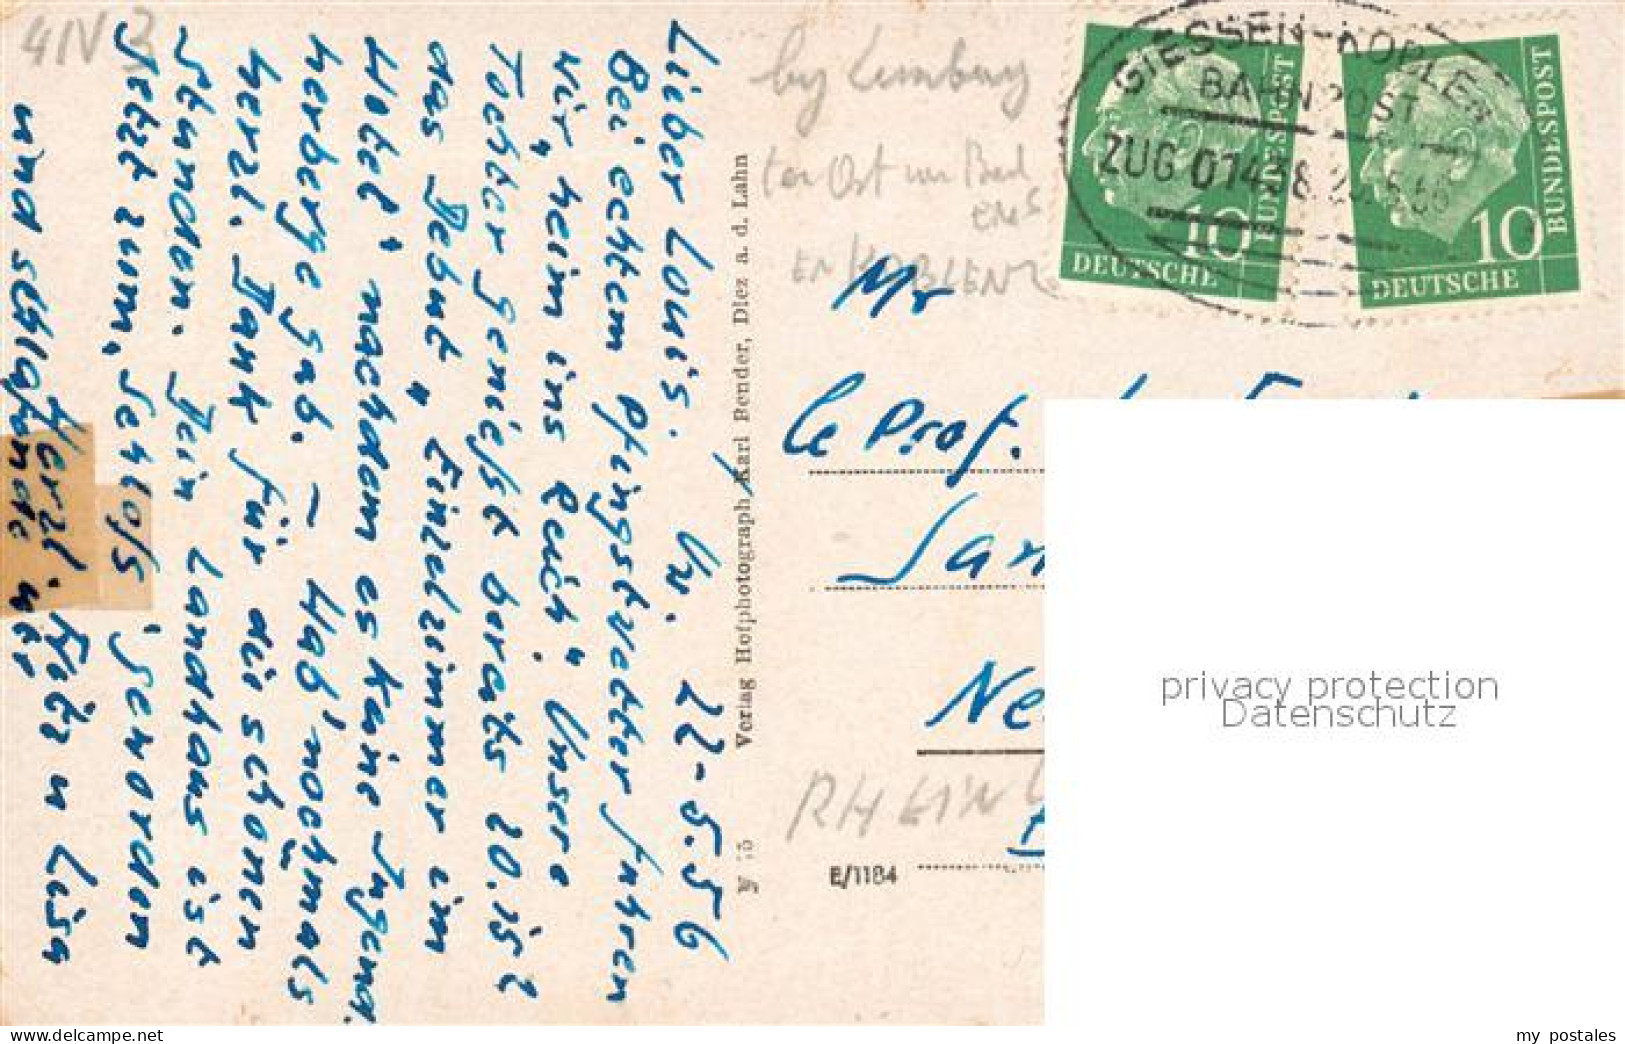 41V 3
Lieber Louis. 22.5.56
Bei echtem Pfingstwetter fuhren
wir "heim ins Reich". Unsere
Tochter genießt bereits 20.15 h
das Debut "Einzelzimmer im
Hotel" nachdem es keine Jugend-
herberge gab. – Hab' nochmals
herzl. Dank für die schönen
Stunden. Dein Landhaus ist
jetzt zum "Schloss" geworden
und schlafende
Herzl. Fritz u Lisa
Verlag Hofphotograph Karl Bender, Diez a. d. Lahn
by Limburg
ten Ost van Bad
ems
EN KOBLENZ
GIESSEN-KOBLENZ
BAHNPOST
ZUG 01438
10
DEUTSCHE
BUNDESPOST
10
DEUTSCHE
BUNDESPOST
Mr
le Prof.
RHEIN
E/1184
privacy protection
Datenschutz
my postales